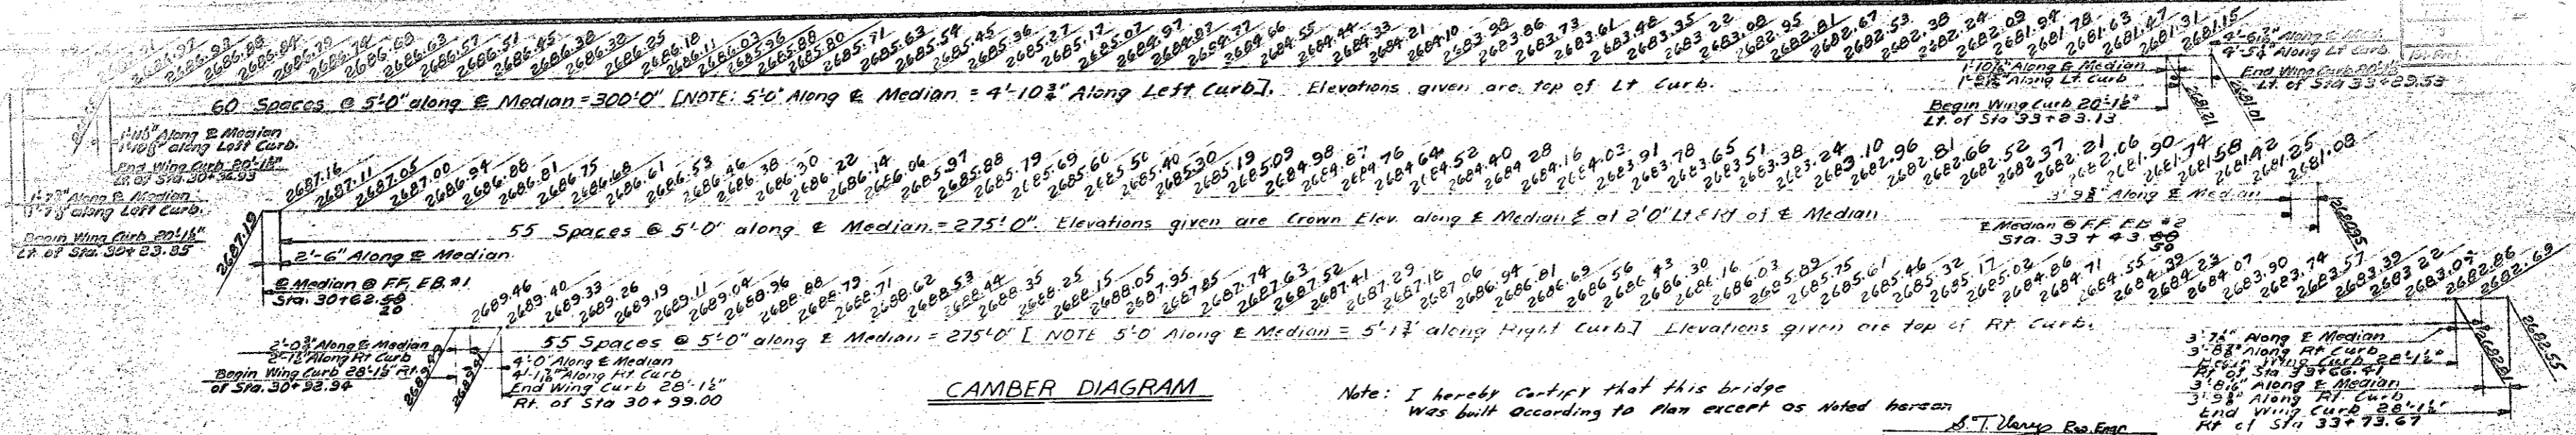 2686.97 2686.93 2686.88 2686.84 2686.79 2686.74 2686.68 2686.63 2686.57 2686.51 2686.45 2686.38 2686.32 2686.25 2686.18 2686.11 2686.03 2685.96 2685.88 2685.80 2685.71 2685.63 2685.54 2685.45 2685.36 2685.27 2685.17 2685.07 2684.97 2684.87 2684.77 2684.66 2684.55 2684.44 2684.33 2684.21 2684.10 2683.98 2683.86 2683.73 2683.61 2683.48 2683.35 2683.22 2683.08 2682.95 2682.81 2682.67 2682.53 2682.38 2682.24 2682.09 2681.94 2681.78 2681.63 2681.47 2681.31 2681.15
60 Spaces @ 5'-0" along ℄ Median = 300'-0" [NOTE: 5'-0" Along ℄ Median = 4'-10¾" Along Left Curb]. Elevations given are top of Lt Curb.
Along ℄ Median
along Left Curb.
End Wing Curb 20'-1½"
Lt of Sta. 30+
Along ℄ Median
along Left Curb.
Begin Wing Curb 20'-1½"
Lt. of Sta. 30+23.85
Along ℄ Median
Along Lt. Curb
Begin Wing Curb 20'-1½"
Lt. of Sta 33+23.13
Along ℄ Med.
Along Lt Curb.
End Wing Curb 20'-1½"
Lt. of Sta 33+29.53
2681.21 2681.01
2687.19 2687.16 2687.11 2687.05 2687.00 2686.94 2686.88 2686.81 2686.75 2686.68 2686.61 2686.53 2686.46 2686.38 2686.30 2686.22 2686.14 2686.06 2685.97 2685.88 2685.79 2685.69 2685.60 2685.50 2685.40 2685.30 2685.19 2685.09 2684.98 2684.87 2684.76 2684.64 2684.52 2684.40 2684.28 2684.16 2684.03 2683.91 2683.78 2683.65 2683.51 2683.38 2683.24 2683.10 2682.96 2682.81 2682.66 2682.52 2682.37 2682.21 2682.06 2681.90 2681.74 2681.58 2681.42 2681.25 2681.08 2680.95
55 Spaces @ 5'-0" along ℄ Median = 275'-0". Elevations given are Crown Elev. along ℄ Median & at 2'0" Lt & Rt of ℄ Median
2'-6" Along ℄ Median
℄ Median @ FF. EB. #1
Sta. 30+62.50
20
3'-9⅝" Along ℄ Median
℄ Median @ FF. EB #2
Sta. 33+43.80
50
2689.46 2689.40 2689.33 2689.26 2689.19 2689.11 2689.04 2688.96 2688.88 2688.79 2688.71 2688.62 2688.53 2688.44 2688.35 2688.25 2688.15 2688.05 2687.95 2687.85 2687.74 2687.63 2687.52 2687.41 2687.29 2687.18 2687.06 2686.94 2686.81 2686.69 2686.56 2686.43 2686.30 2686.16 2686.03 2685.89 2685.75 2685.61 2685.46 2685.32 2685.17 2685.02 2684.86 2684.71 2684.55 2684.39 2684.23 2684.07 2683.90 2683.74 2683.57 2683.39 2683.22 2683.04 2682.86 2682.69
55 Spaces @ 5'-0" along ℄ Median = 275'-0" [NOTE 5'-0" Along ℄ Median = 5'-1¾" along Right Curb] Elevations given are top of Rt. Curb.
2'-0¾" Along ℄ Median
2'-1½" Along Rt Curb
Begin Wing Curb 28'-1½" Rt.
of Sta. 30+92.94
4'-0" Along ℄ Median
Along Rt Curb
End Wing Curb 28'-1½"
Rt. of Sta 30+99.00
Along ℄ Median
Along Rt Curb
Begin Wing Curb 28'-1½"
Rt of Sta 33+66.41
Along ℄ Median
Along Rt. Curb
End Wing Curb 28'-1½"
Rt of Sta 33+73.67
2682.55
CAMBER DIAGRAM
Note: I hereby Certify that this bridge
Was built According to Plan except as Noted hereon
Res. Engr.